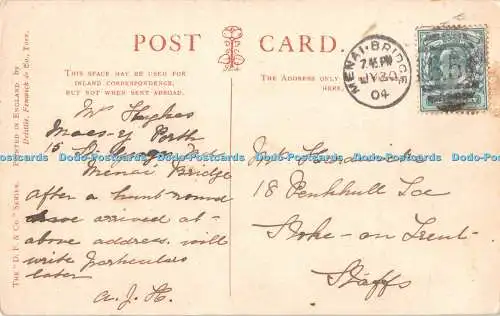 POST CARD.
THIS SPACE MAY BE USED FOR
INLAND CORRESPONDENCE,
BUT NOT WHEN SENT ABROAD.
THE ADDRESS ONLY
HERE.
MENAI-BRIDGE
7.45 PM
JY 30
04
THE "D.F. & Co." SERIES.
PRINTED IN ENGLAND BY
Delittle, Fenwick & Co., York.
Mr Hughes
Maes-y Porth
15
Menai Bridge
After a hunt round
have arrived at
above address. will
write particulars
later
A. J. H.
18 Penkhull Tce
Stoke-on Trent
Staffs
Dodo-Postcards Dodo-Postcards Dodo-Postcards Dodo-Postcards Dodo-Postcards